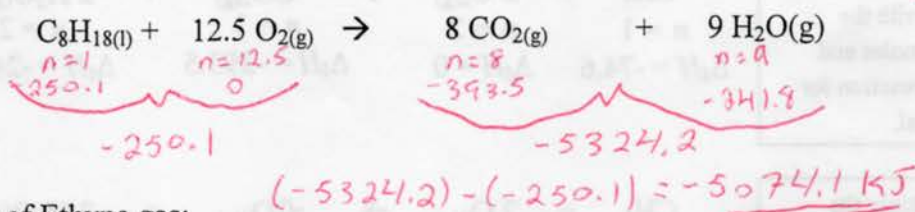 C₈H₁₈₍ₗ₎ + 12.5 O₂₍g₎ → 8 CO₂₍g₎ + 9 H₂O(g)
n=1 n=12.5 n=8 n=9
-250.1 0 -393.5 -241.8
-250.1 -5324.2
(-5324.2) - (-250.1) = -5074.1 KJ
of Ethyne gas: